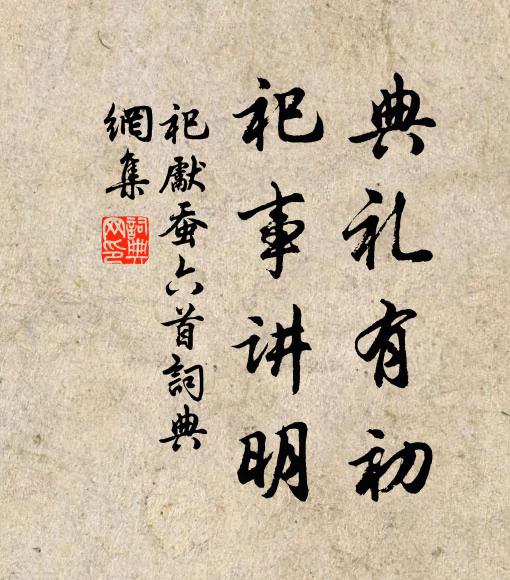 典礼有初
祀事讲明
祀獻蚕六首詞典
網集
詞典
网印